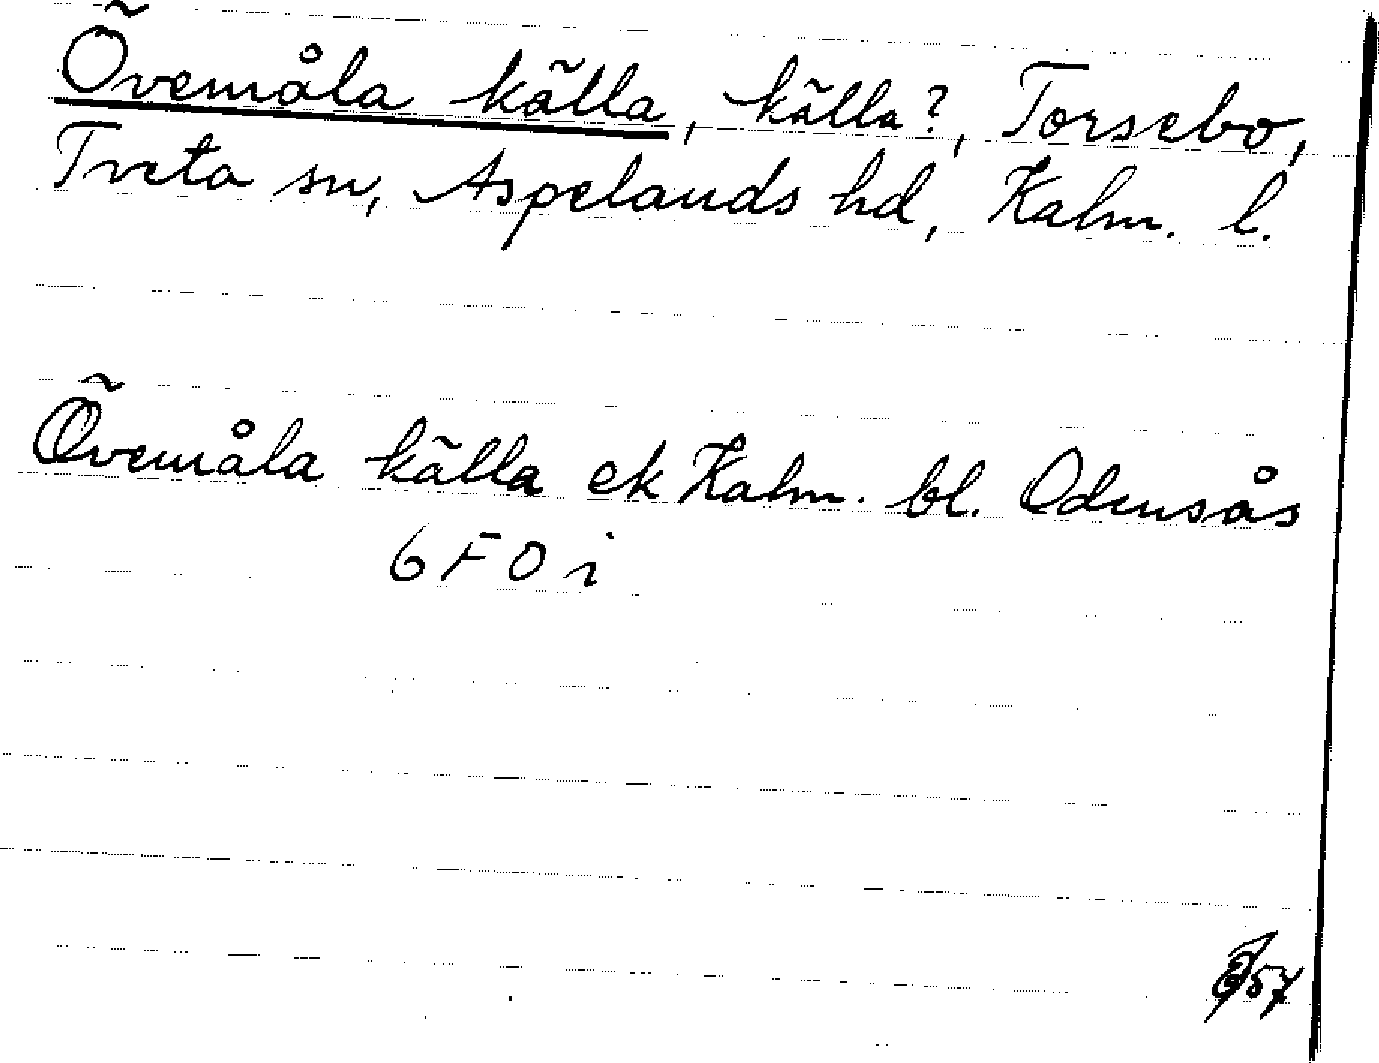 Övemåla källa, källa?, Torsebo,
Tveta sn, Aspelands hd, Kalm. l.
Övemåla källa ek Kalm. bl. Odensås
6 F O i
57